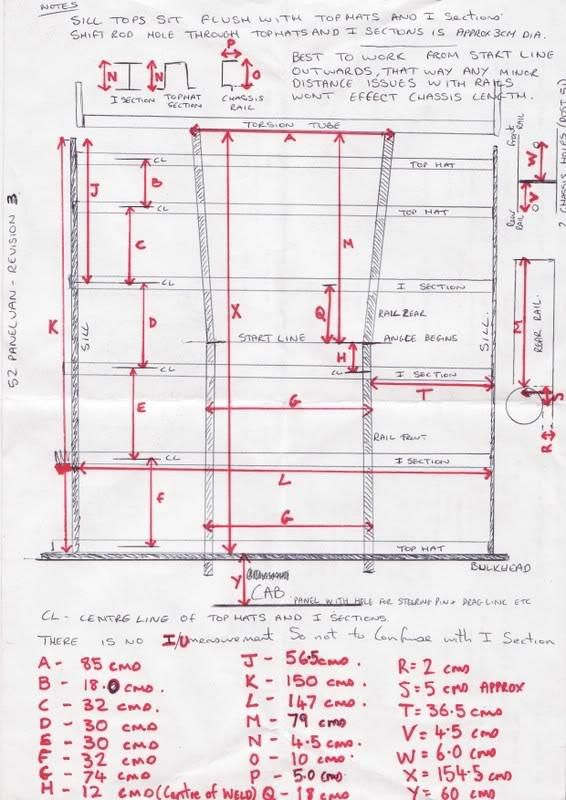 NOTES
SILL TOPS SIT FLUSH WITH TOPMATS AND I SECTIONS.
SHIFT ROD HOLE THROUGH TOPHATS AND I SECTIONS IS APPROX 3CM DIA.
BEST TO WORK FROM START LINE
OUTWARDS, THAT WAY ANY MINOR
DISTANCE ISSUES WITH RAILS
WONT EFFECT CHASSIS LENGTH.
N
I SECTION
N
TOPHAT
SECTION
P
O
CHASSIS
RAIL
TORSION TUBE
A
CL
TOP HAT
J
B
CL
TOP HAT
C
M
CL
I SECTION
K
SILL
X
Q
RAIL REAR
D
START LINE
ANGLE BEGINS
SILL
H
CL
CL
I SECTION
T
E
G
RAIL FRONT
CL
I SECTION
L
F
G
TOP HAT
BULKHEAD
Y
CAB
PANEL WITH HOLE FOR STEERING PIN + DRAG LINK ETC
52 PANELVAN - REVISION 3
FRONT RAIL
W
V
REAR RAIL
2 CHASSIS HOLES
M
REAR RAIL
S
R
CL - CENTRE LINE OF TOP MATS AND I SECTIONS.
THERE IS NO I/U measurement So not to Confuse with I Section
A - 85 cms
B - 18.0 cms.
C - 32 cms.
D - 30 cms
E - 30 cms
F - 32 cms
G - 74 cms
H - 12 cms (Centre of WELD)
J - 56.5 cms.
K - 150 cms.
L - 147 cms.
M - 79 cms
N - 4.5 cms.
O - 10 cms.
P - 5.0 cms
Q - 18 cms
R = 2 cms
S = 5 cms APPROX
T = 36.5 cms
V = 4.5 cms
W = 6.0 cms
X = 154.5 cms
Y = 60 cms